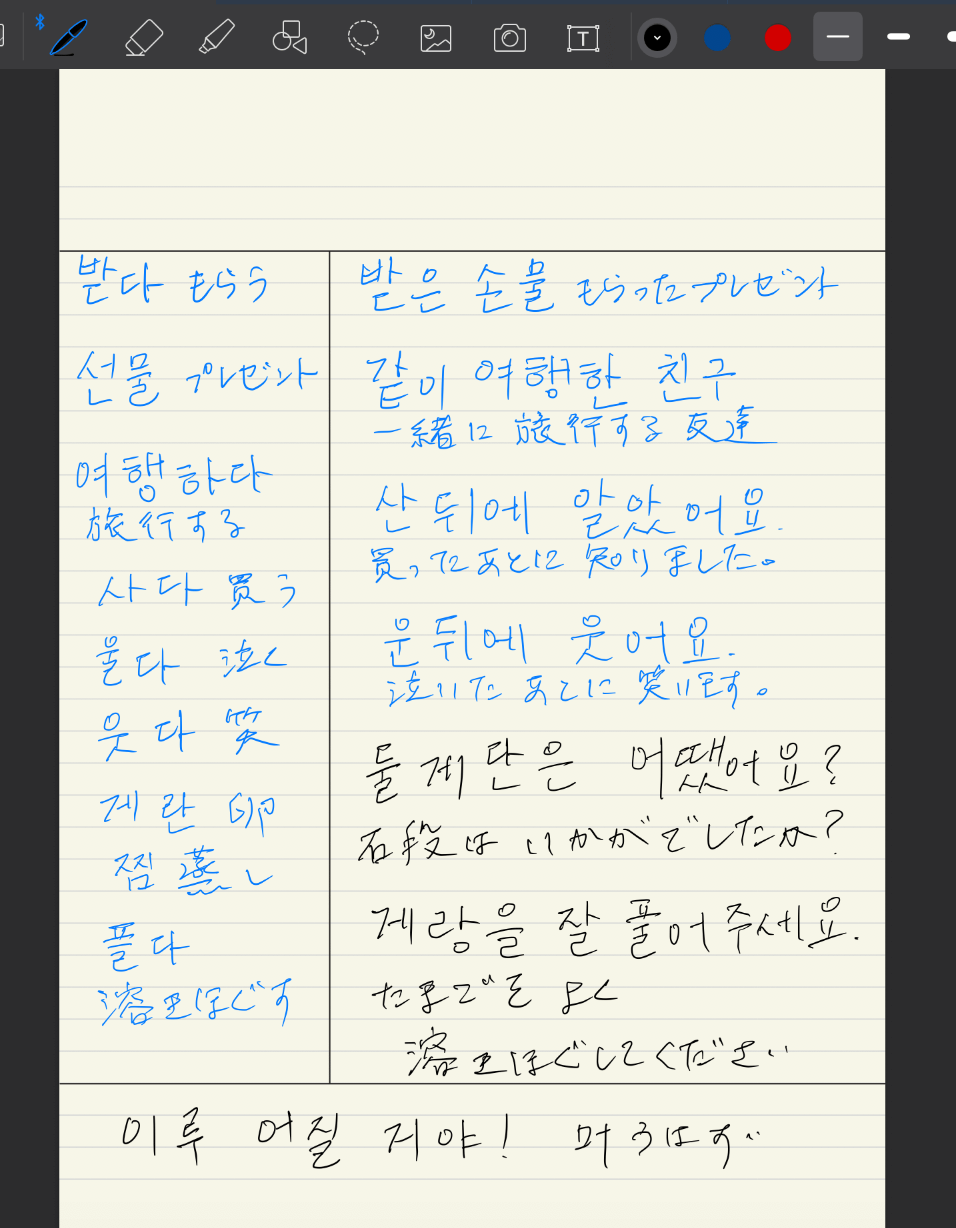 받다 もらう
선물 プレゼント
여행하다
旅行する
사다 買う
울다 泣く
웃다 笑
계란 卵
찜 蒸し
플다
溶きほぐす
받은 손물 もらったプレゼント
같이 여행한 친구
一緒に 旅行する 友達
산 뒤에 알았어요.
買ったあとに 知りました。
운뒤에 웃어요.
泣いた あとに 笑います。
돌계단은 어땠어요?
石段は いかがでしたか?
계랑을 잘 풀어주세요.
たまごを よく
溶きほぐしてください
이루 어질 거야! 叶うはず
T